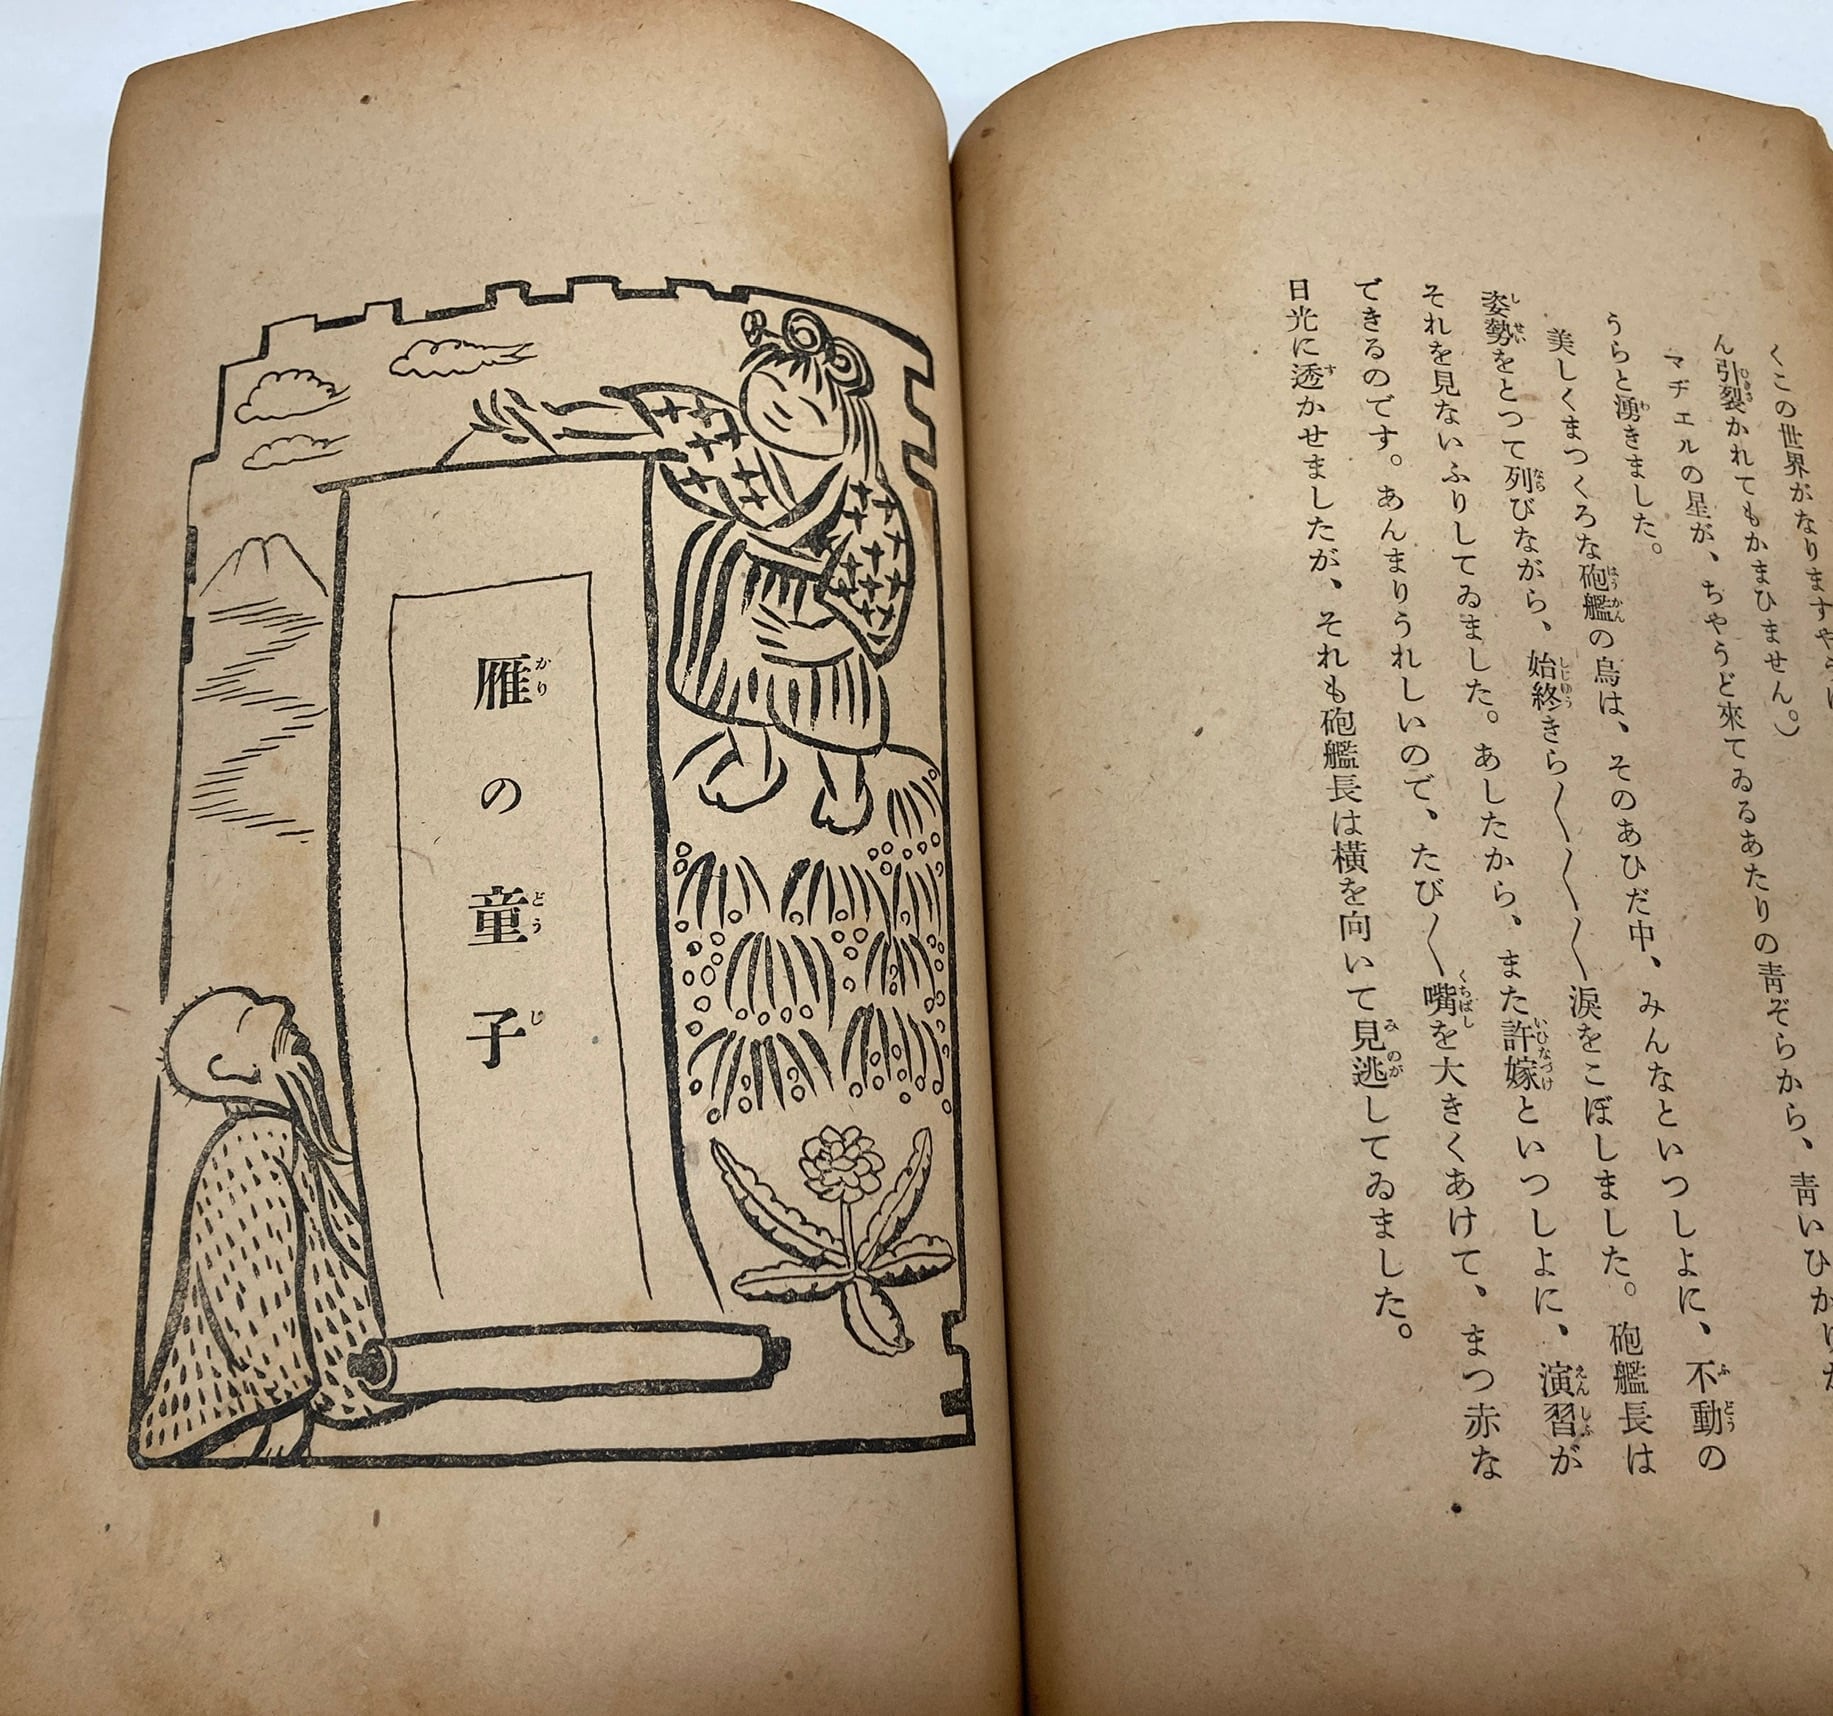 くこの世界がなりますや
ん引裂かれてもかまひません。）
マヂエルの星が、ちやうど來てゐるあたりの靑ぞらから、靑いひかり
うらと湧きました。
美しくまつくろな砲艦の烏は、そのあひだ中、みんなといつしよに、不動の
姿勢をとつて列びながら、始終きら〱〱〱涙をこぼしました。砲艦長は
それを見ないふりしてゐました。あしたから、また許嫁といつしよに、演習が
できるのです。あんまりうれしいので、たび〱嘴を大きくあけて、まつ赤な
日光に透かせましたが、それも砲艦長は橫を向いて見逃してゐました。
雁の童子